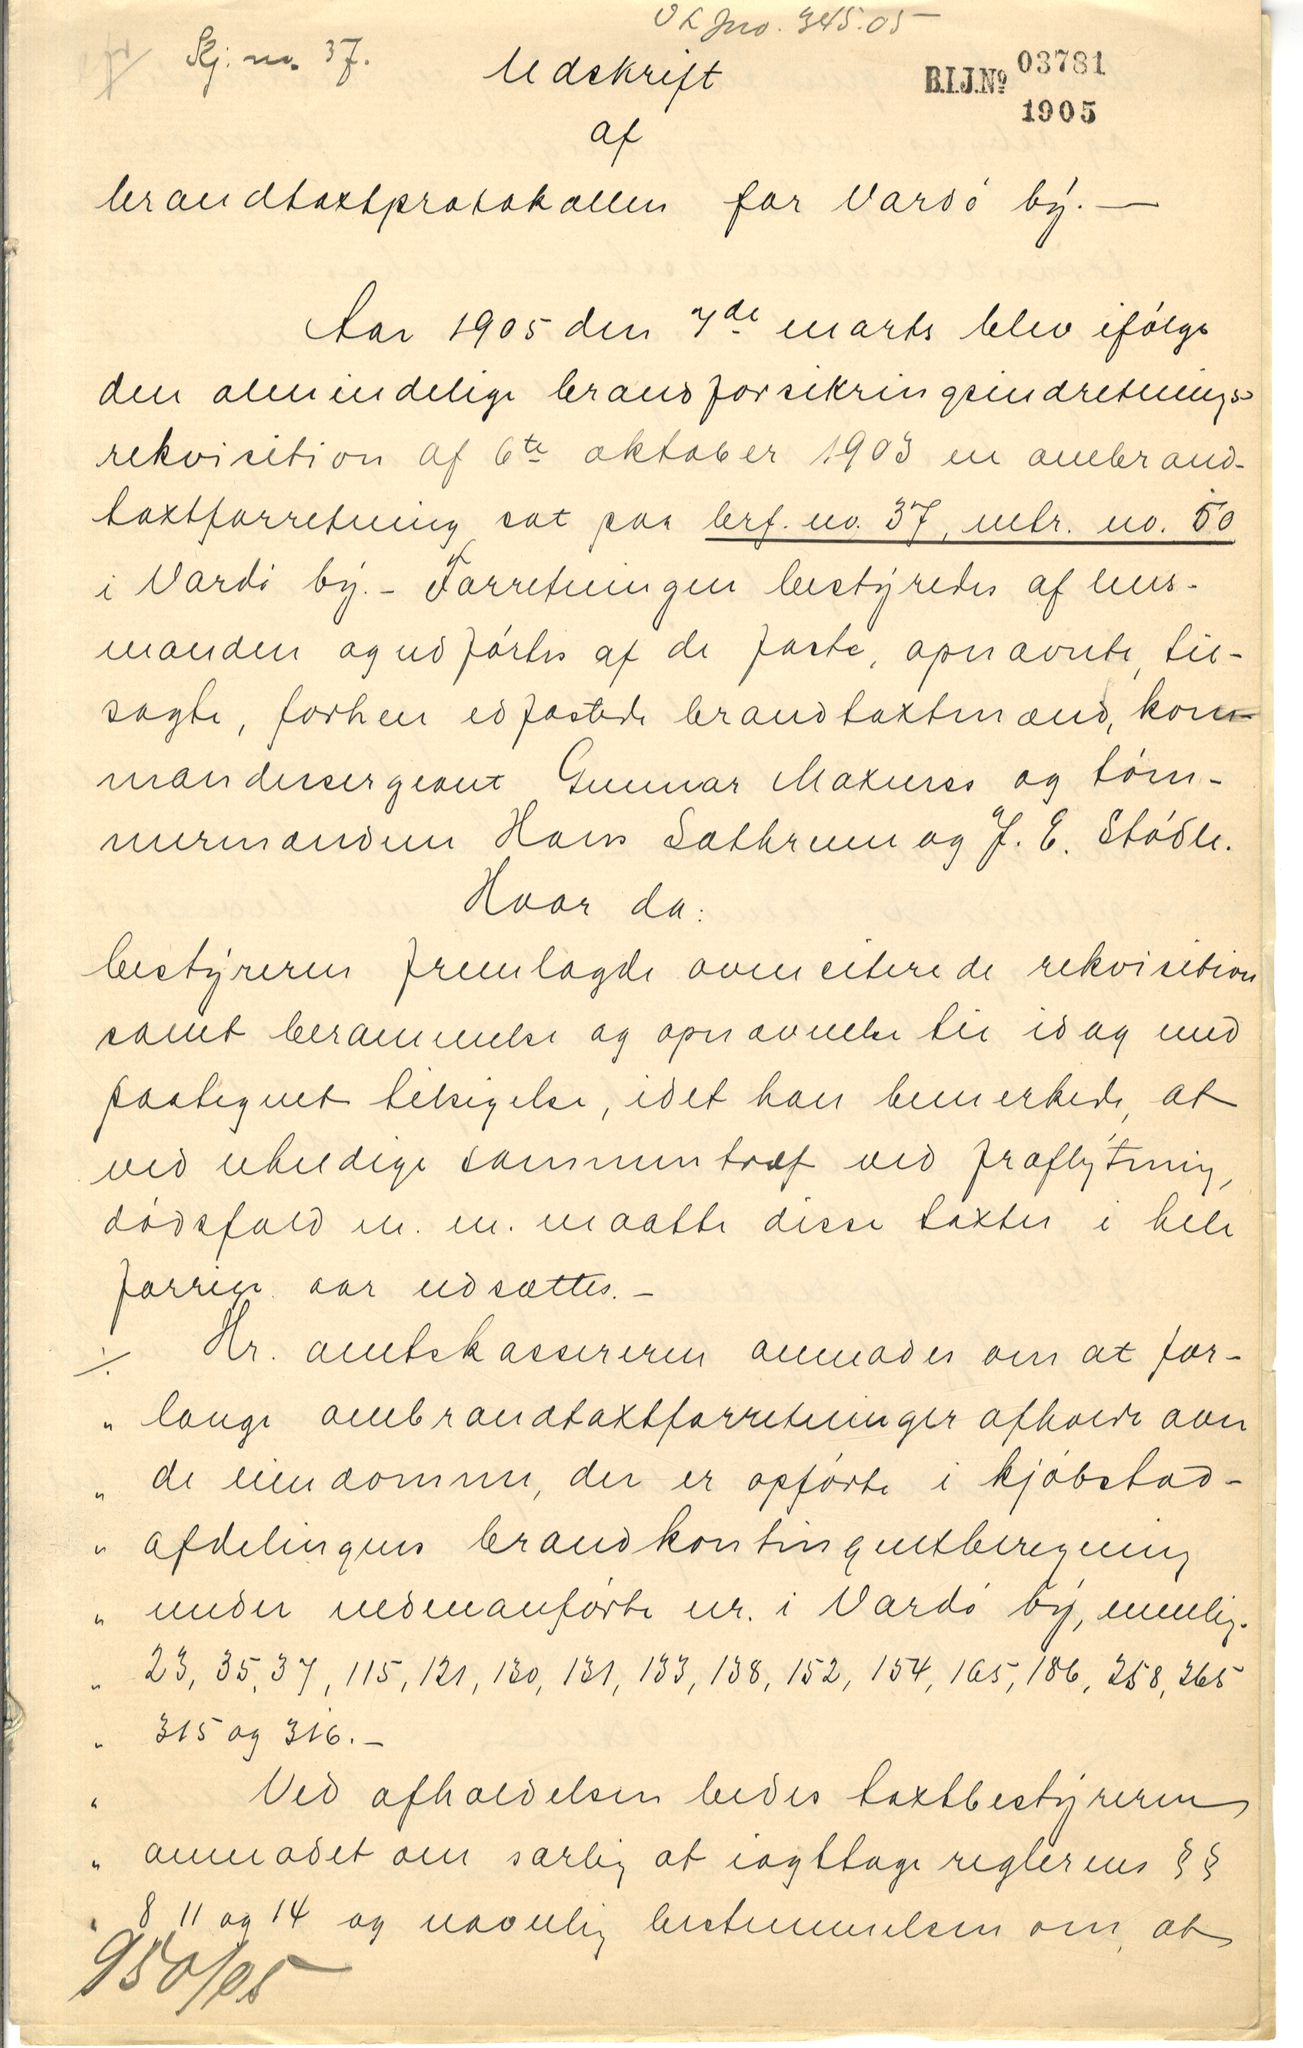 V L Jno. 345.05
Skj. no. 37.
B.I.J.No 03781
1905
Udskrift
af
brandtaxtprotokollen for Vardö by. —
Aar 1905 den 7de marts blev ifölge
den almindelige brandforsikringsindretnings
rekvisition af 6te oktober 1903 en ombrand-
taxtforretning sat paa brf. no. 37, mtr. no. 50
i Vardö by. - Forretningen bestyredes af lens-
manden og udförtes af de faste, opnævnte, til-
sagte, forhen edfæstede brandtaxtmænd, kom-
mandersergeant Gunnar Maxurss og töm-
mermændene Hans Sæthrum og J. E. Stödle.
Hvor da:
bestyreren fremlagde ovenciterede rekvisition
samt berammelse og opnævnelse til idag med
paategnet tilsigelse, idet han bemerkede, at
ved uheldige sammentræf ved fraflytning,
dödsfald m. m. maatte disse taxter i hele
forrige aar udsættes. -
./. Hr. amtskassereren anmodes om at for-
" lange ombrandtaxtforretninger afholdt over
" de eiendomme, der er opförte i kjöbstad-
" afdelingens brandkontingentberegning
" under nedenanförte nr. i Vardö by, nemlig.
" 23, 35, 37, 115, 121, 130, 131, 133, 138, 152, 154, 165, 186, 258, 265
" 315 og 316. -
" Ved afholdelsen bedes taxtbestyreren
" anmodet om særlig at iagttage reglernes § §
" 8 11 og 14 og navnlig bestemmelsen om, at
950/05